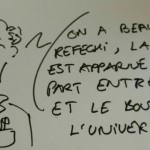 ON A BEAU
REFECHI, LA
EST APPARUE
PART ENTRE
ET LE BOU
L'UNIVER